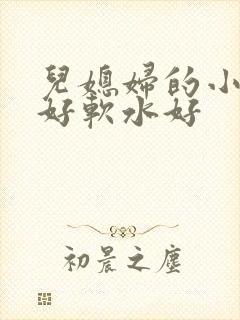 兒媳婦的小
好軟水好
初晨之塵